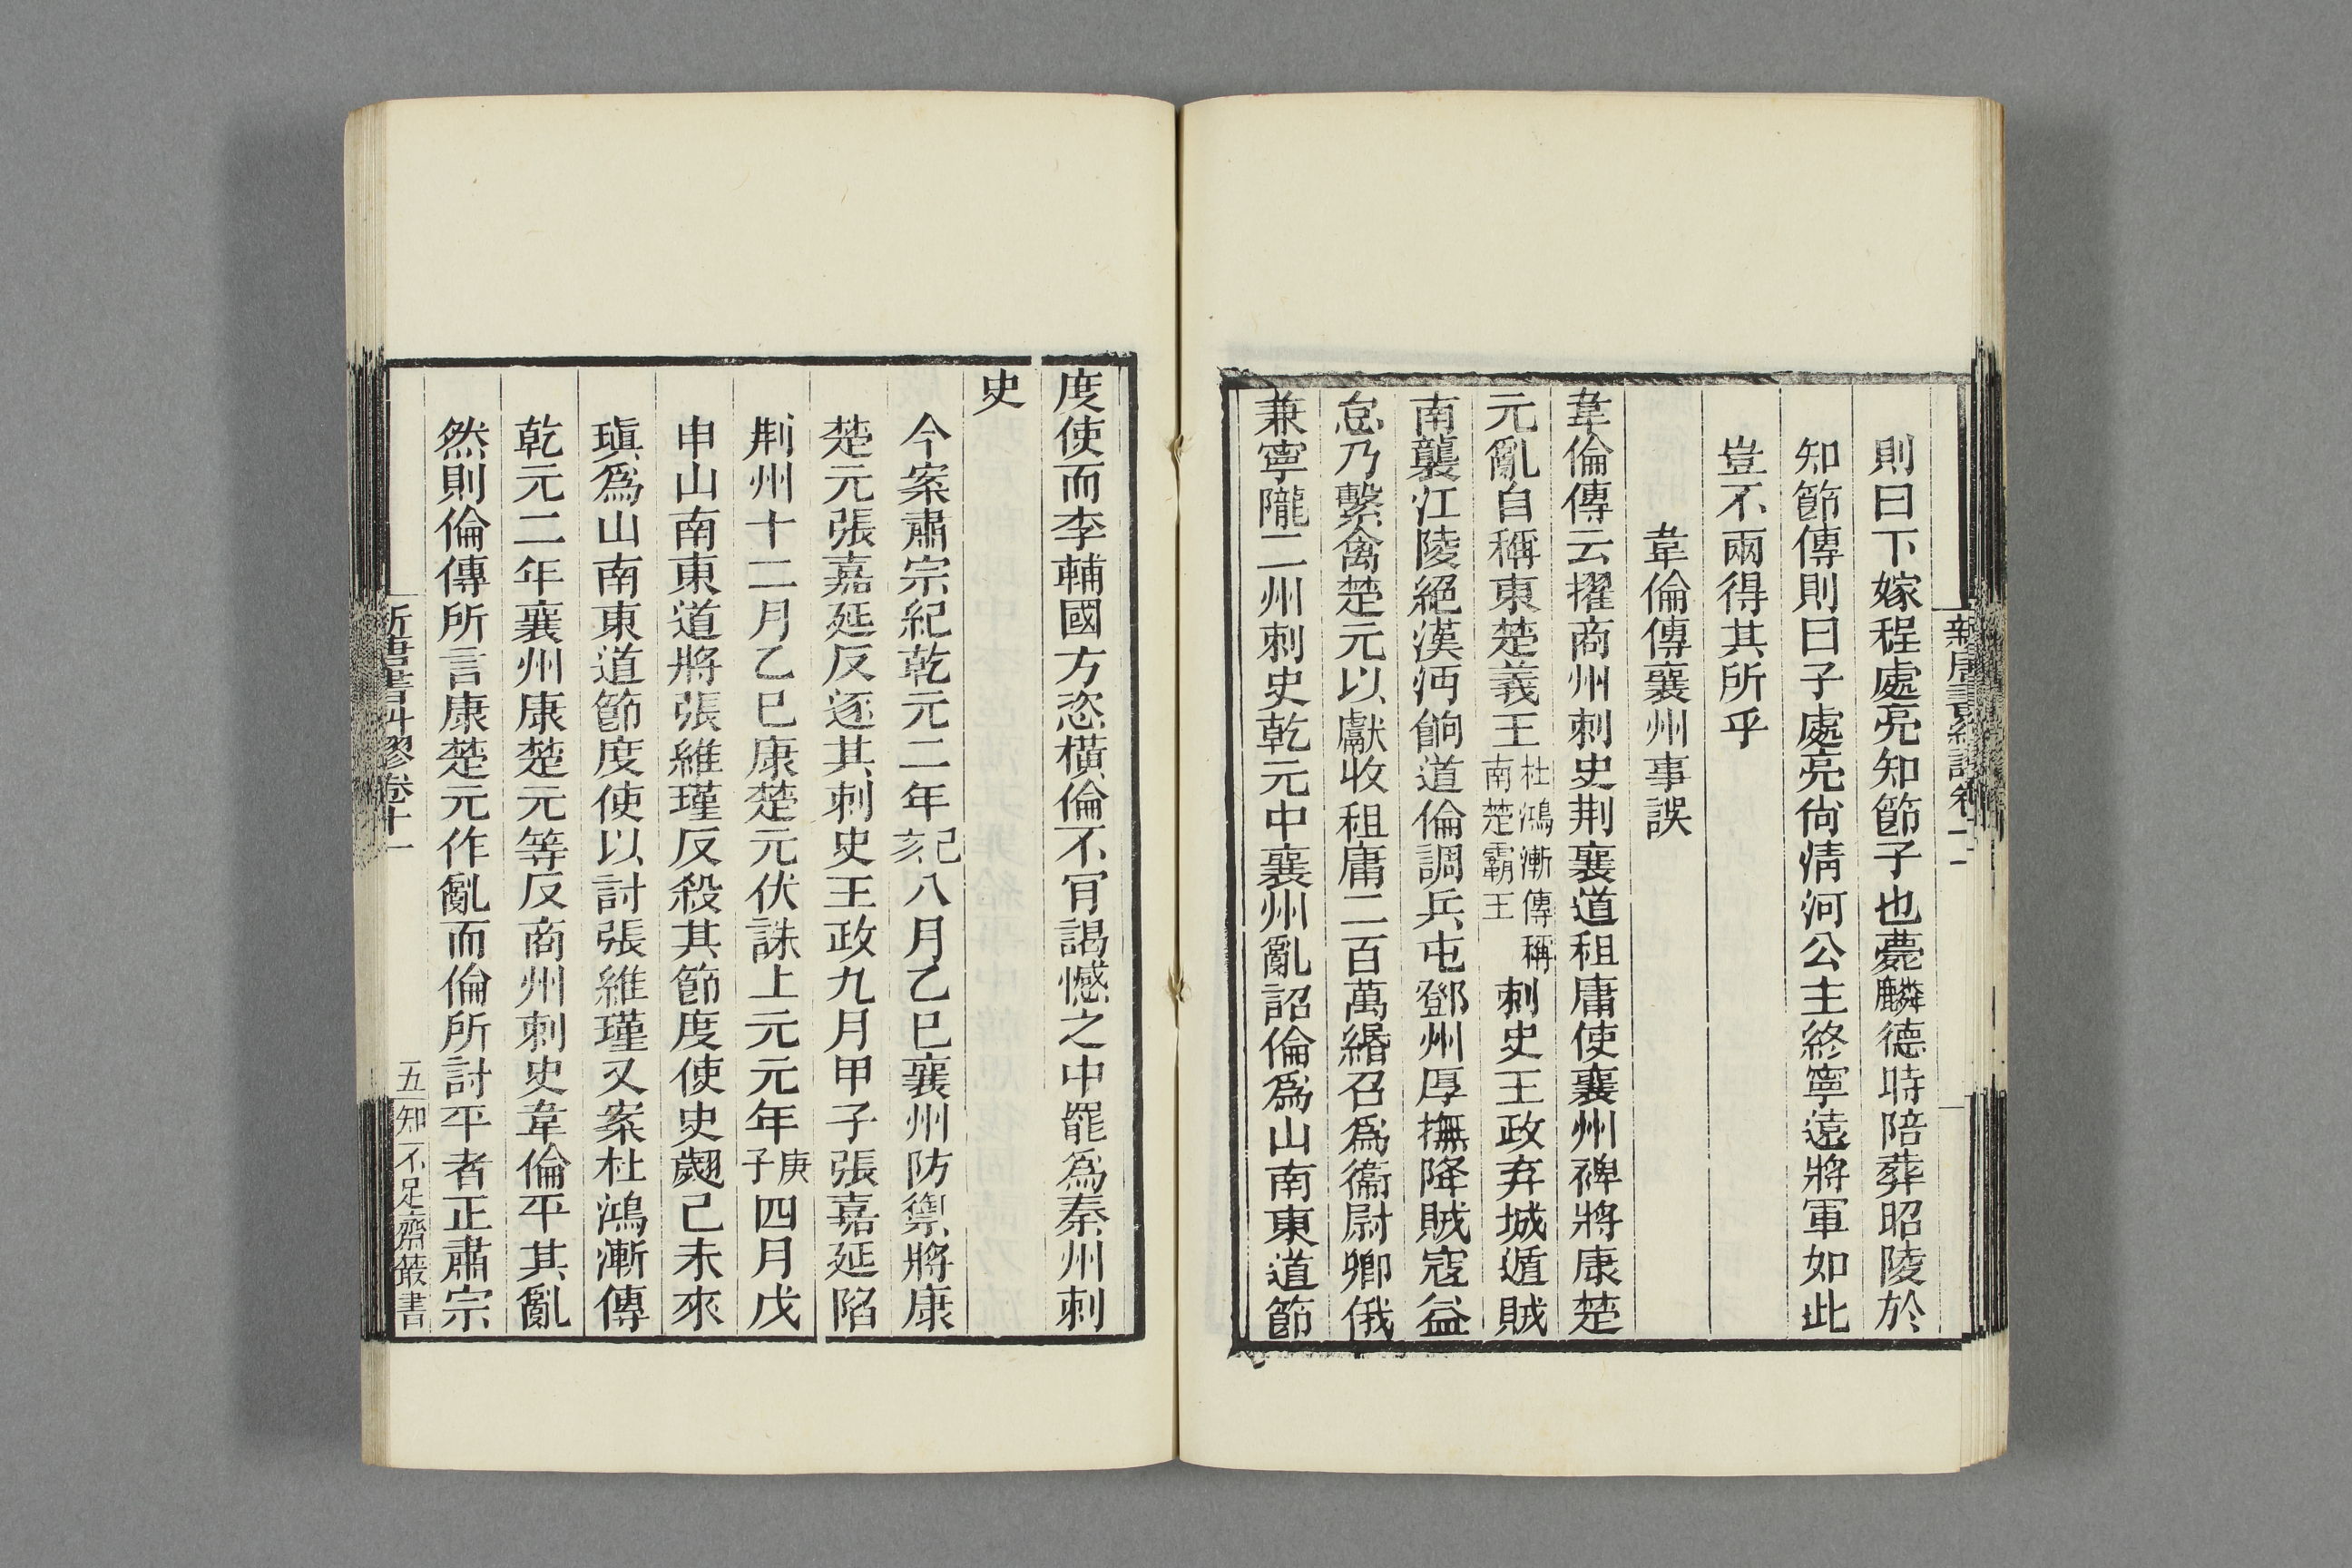 則曰下嫁程處亮知節子也薨麟德時陪葬昭陵於
知節傳則曰子處亮尙淸河公主終寧遠將軍如此
豈不兩得其所乎
韋倫傳襄州事誤
韋倫傳云擢商州刺史荆襄道租庸使襄州裨將康楚
元亂自稱東楚義王杜鴻漸傳稱南楚霸王刺史王政弃城遁賊
南襲江陵絕漢沔餉道倫調兵屯鄧州厚撫降賊寇益
怠乃繫禽楚元以獻收租庸二百萬緡召爲衞尉卿俄
兼寧隴二州刺史乾元中襄州亂詔倫爲山南東道節
度使而李輔國方恣橫倫不肎謁憾之中罷爲秦州刺
史
今案肅宗紀乾元二年己亥八月乙巳襄州防禦將康
楚元張嘉延反逐其刺史王政九月甲子張嘉延陷
荆州十二月乙巳康楚元伏誅上元元年庚子四月戊
申山南東道將張維瑾反殺其節度使史翽己未來
瑱爲山南東道節度使以討張維瑾又案杜鴻漸傳
乾元二年襄州康楚元等反商州刺史韋倫平其亂
然則倫傳所言康楚元作亂而倫所討平者正肅宗
五
知不足齋叢書